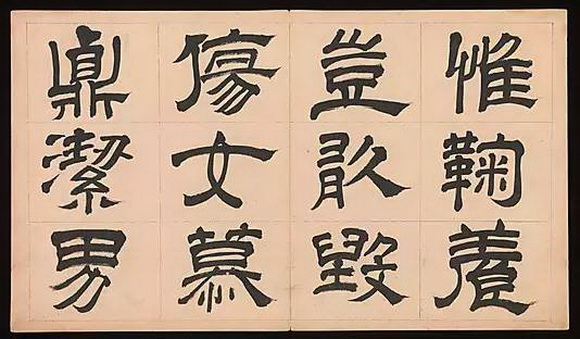 惟鞠養
豈敢毀
傷女慕
貞潔男